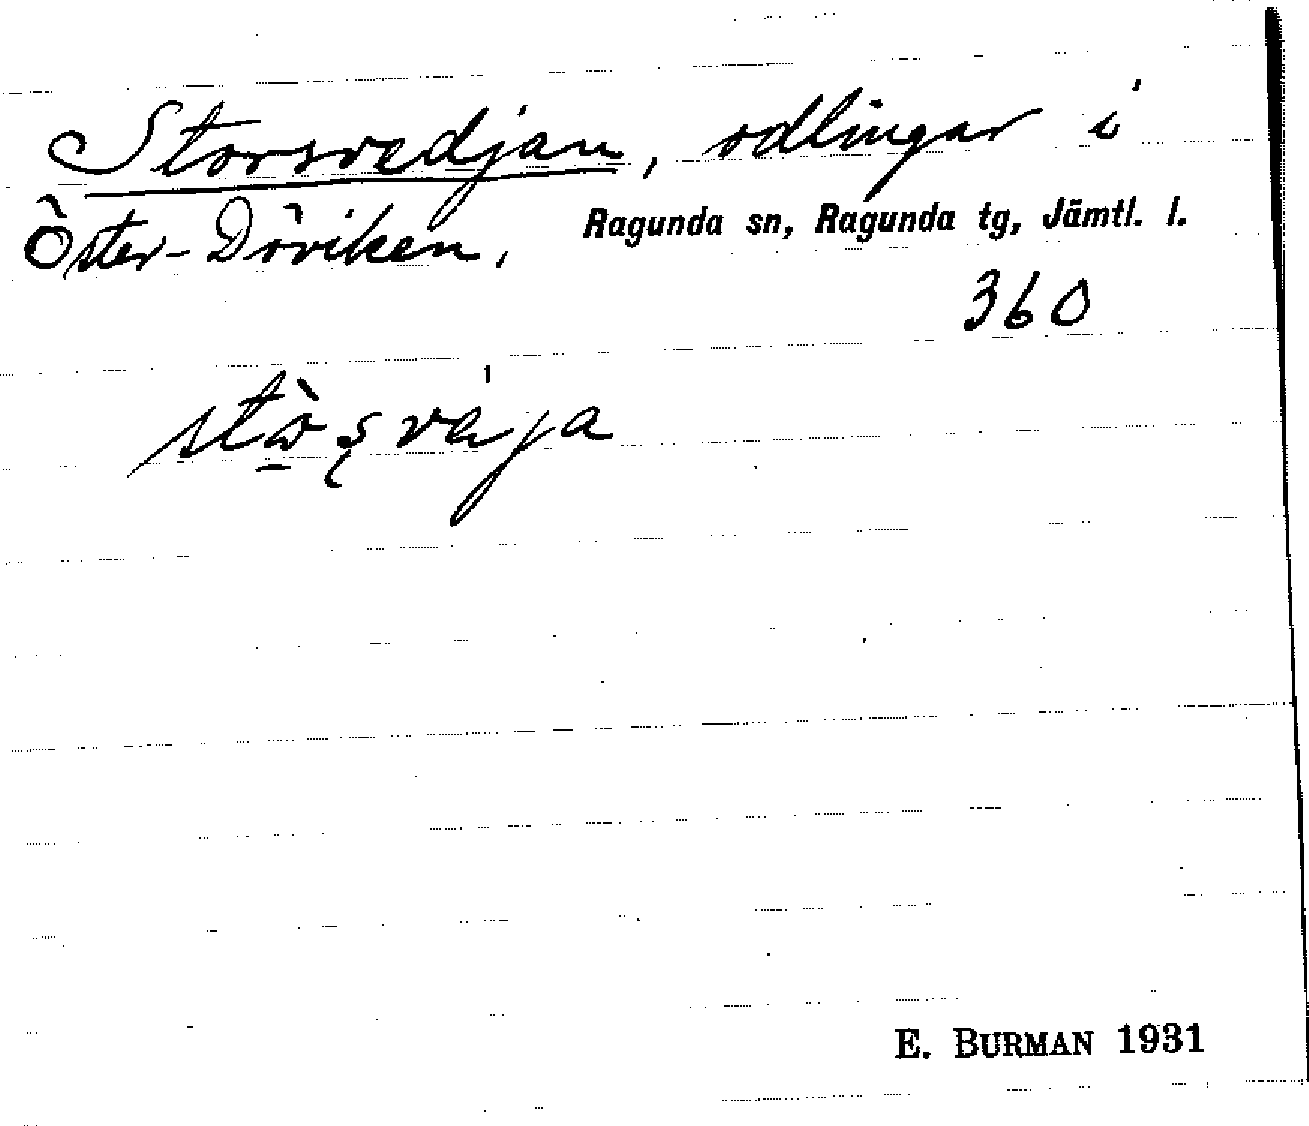 Storsvedjan, odlingar i
Öster-Döviken, Ragunda sn, Ragunda tg, Jämtl. l.
360
E. BURMAN 1931